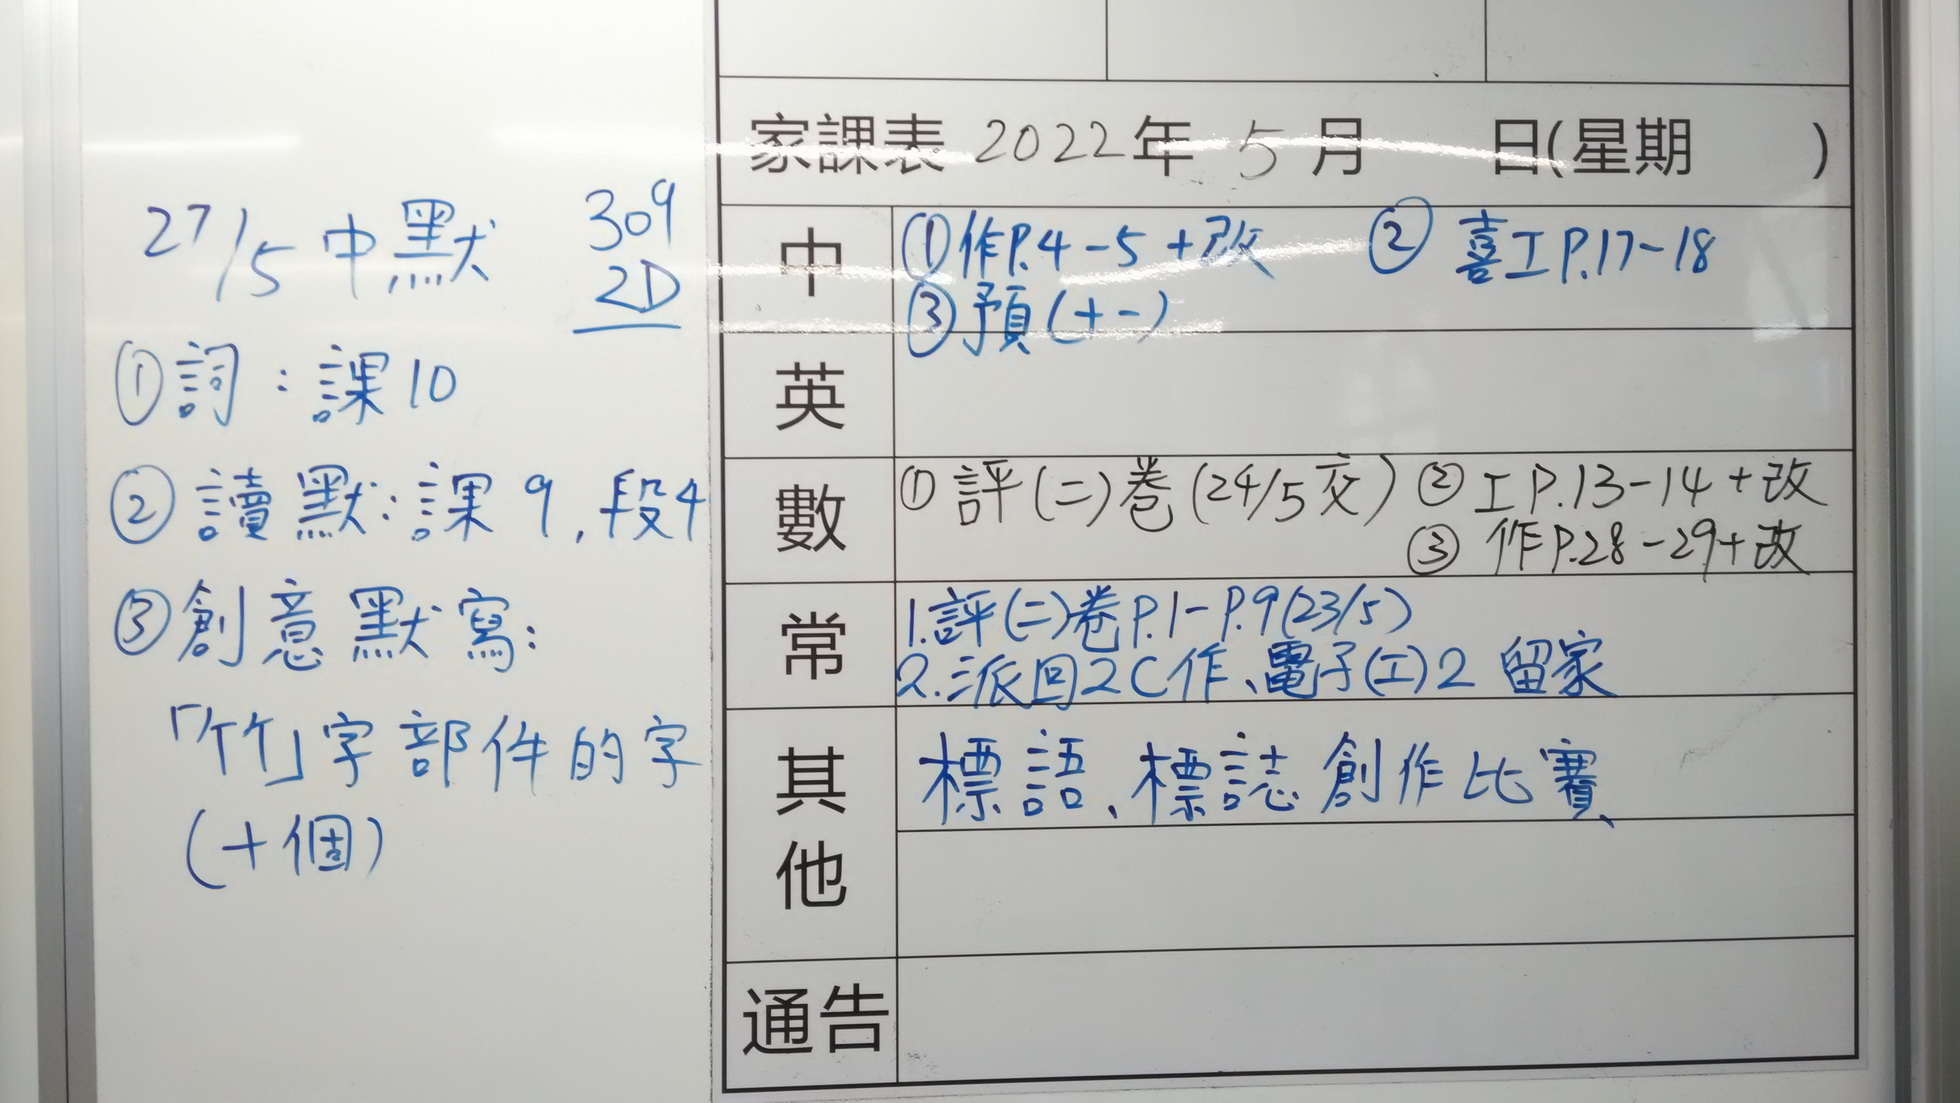 27/5 中默
309
2D
①詞：課10
②讀默：課9，段4
③創意默寫：
「竹」字部件的字
(十個)
家課表 2022年 5月 日(星期 )
中
①作P.4-5+改 ②喜工P.17-18
③預(十一)
英
數
①評(二)卷(24/5交) ②工P.13-14+改
③作P.28-29+改
常
1.評(二)卷P.1-P.9(23/5)
2.派回2C作、電子(工)2 留家
其他
標語、標誌創作比賽
通告